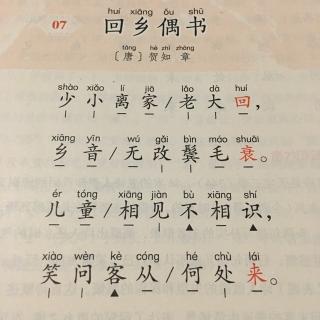 huí xiāng ǒu shū
07 回乡偶书
táng hè zhī zhāng
〔唐〕贺知章
shào xiǎo lí jiā lǎo dà huí
少小离家/老大回,
xiāng yīn wú gǎi bìn máo shuāi
乡音/无改鬓毛衰。
ér tóng xiāng jiàn bù xiāng shí
儿童/相见不相识,
xiào wèn kè cóng hé chù lái
笑问客从/何处来。